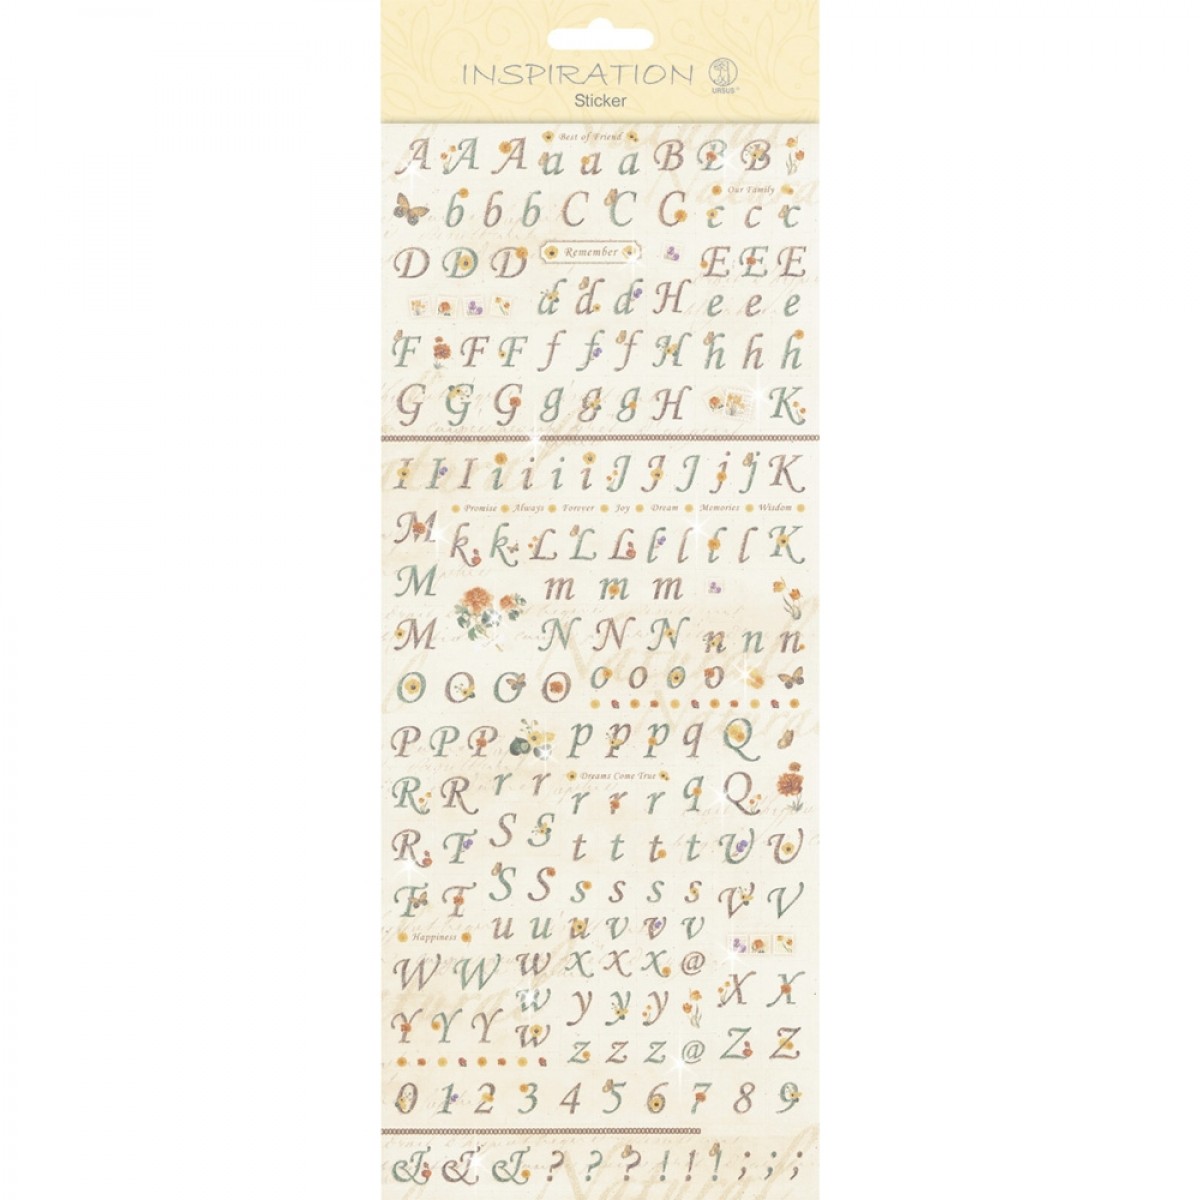 INSPIRATION
URSUS
Sticker
Best of Friend
A A A a a a B B B
Our Family
b b b C C C c c c
D D D Remember E E E
d d d H e e e
F F F f f f H h h h
G G G g g g H K
I I I i i i i J J J j j K
Promise Always Forever Joy Dream Memories Wisdom
M k k L L L l l l l K
M m m m
M N N N n n n
O O O O o o o o
P P P p p p q Q
Dreams Come True
R R r r r r r q Q
R T S S t t t t U U
T T S S s s s s V V
u u u v v v
Happiness
W W w x x x @ X X
w
Y Y Y w y y y
z z z @ Z Z
0 1 2 3 4 5 6 7 8 9
& & & ? ? ? ! ! ! ; ; ;